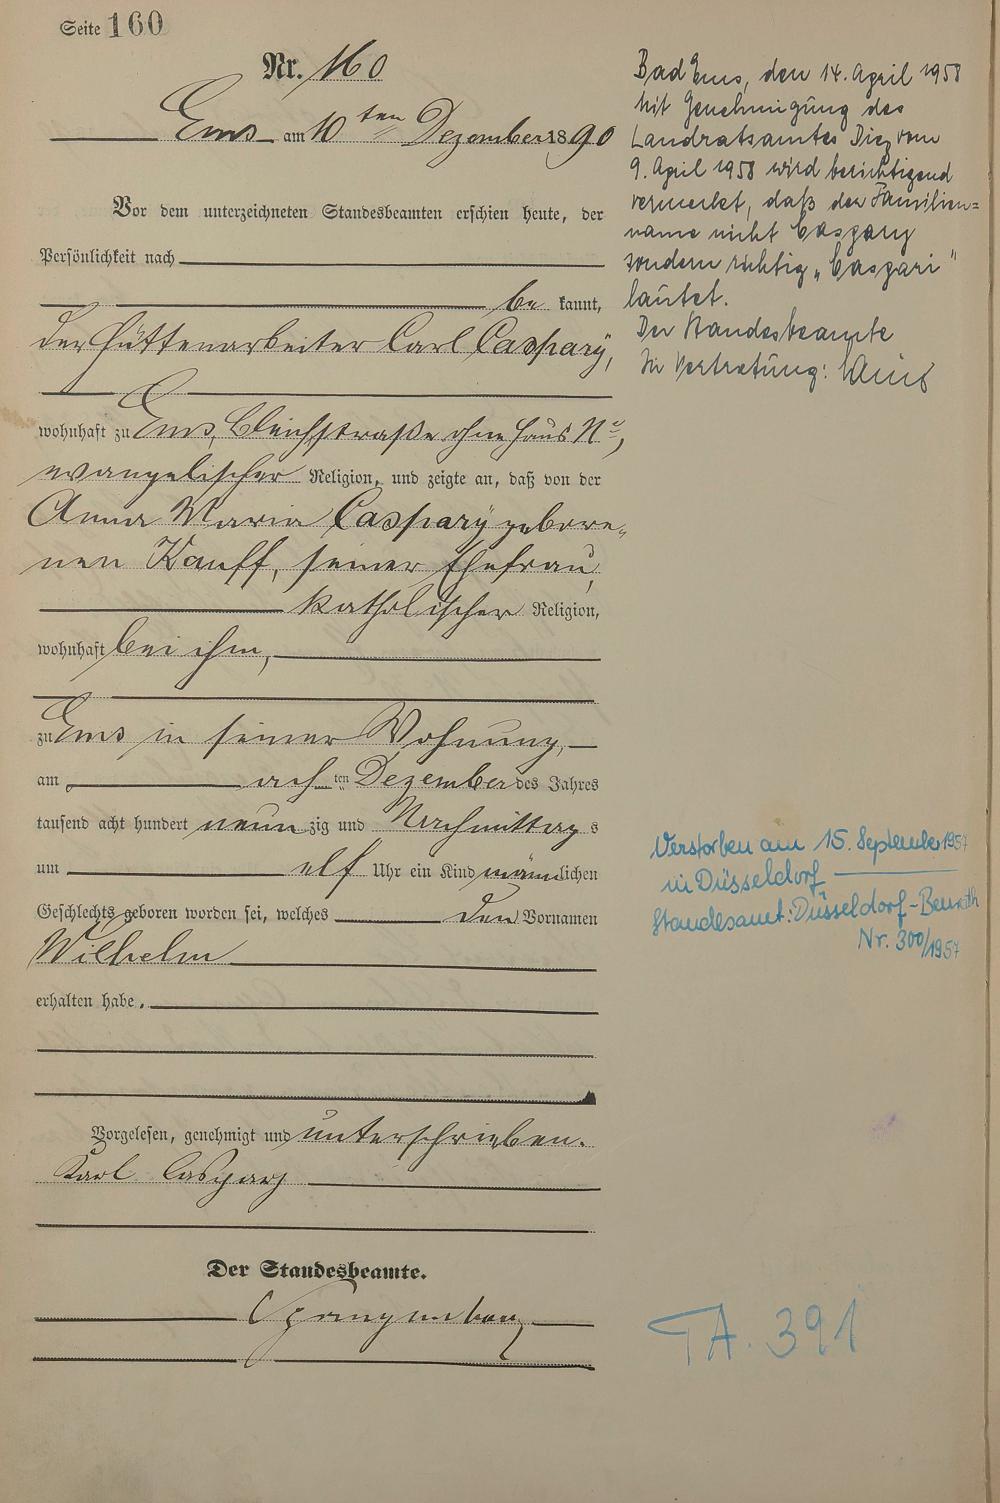 Seite 160
Nr. 160
Ems am 10ten Dezember 1890
Vor dem unterzeichneten Standesbeamten erschien heute, der
Persönlichkeit nach
be kannt,
der Hüttenarbeiter Carl Caspary,
wohnhaft zu Ems, Bleichstraße ohne Haus No,
evangelischer Religion, und zeigte an, daß von der
Anna Maria Caspary gebore-
nen Kauff, seiner Ehefrau,
katholischer Religion,
wohnhaft bei ihm,
zu Ems in seiner Wohnung,
am ach ten Dezember des Jahres
tausend acht hundert neun zig und Nachmittag s
um elf Uhr ein Kind männlichen
Geschlechts geboren worden sei, welches den Vornamen
Wilhelm
erhalten habe.
Vorgelesen, genehmigt und unterschrieben.
Karl Caspary
Der Standesbeamte.
Bad Ems, den 14. April 1958
Mit Genehmigung des
Landratsamtes Diez vom
9. April 1958 wird berichtigend
vermerkt, daß der Familien=
name nicht Caspary
sondern richtig „Caspari"
lautet.
Der Standesbeamte
In Vertretung:
Verstorben am 15. September 1957
in Düsseldorf
Standesamt: Düsseldorf-Benrath
Nr. 300/1957
TA. 391